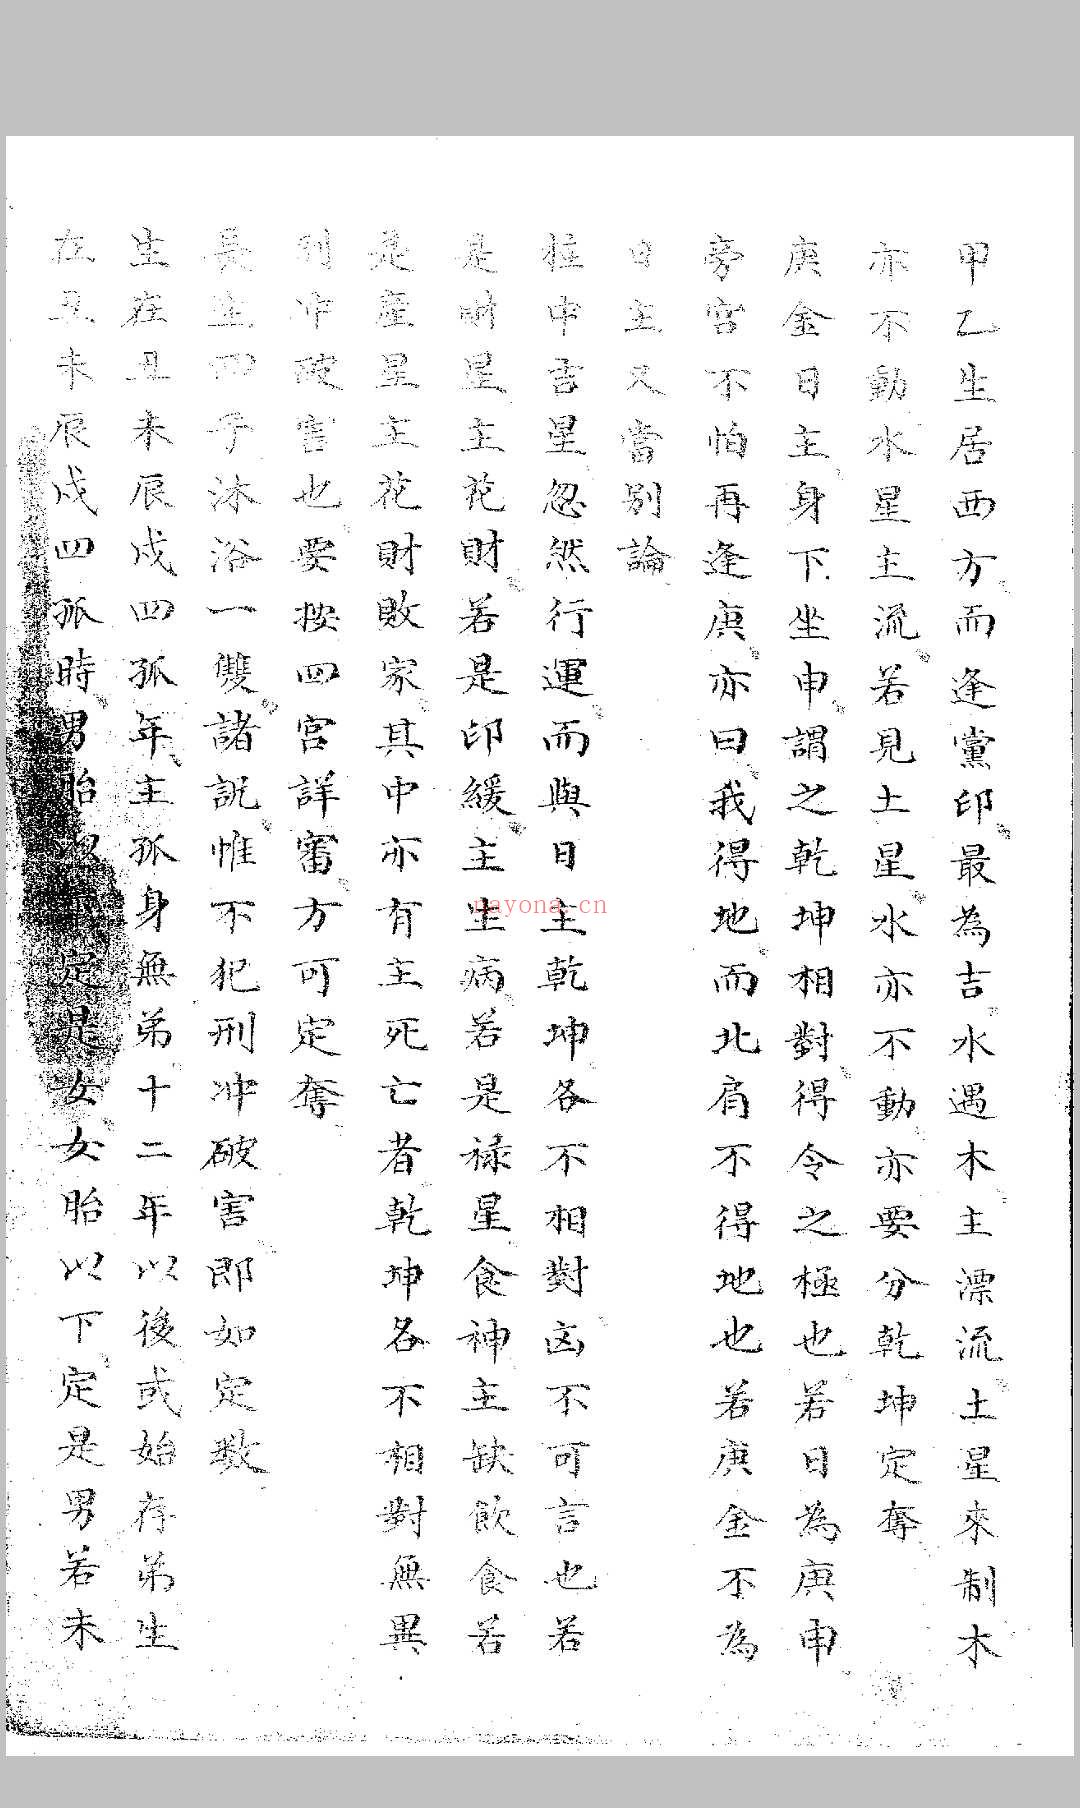 甲乙生居西方而逢黨印最為吉水遇木主漂流土星來制木
亦不動水星主流若見土星水亦不動亦要分乾坤定奪
庚金日主身下坐申謂之乾坤相對得令之極也若日為庚申
旁宮不怕再逢庚亦曰我得地而北肩不得地也若庚金不為
日主又當別論
柱中吉星忽然行運而與日主乾坤各不相對凶不可言也若
是財星主花財若是印綬主生病若是祿星食神主缺飲食若
是產星主花財敗家其中亦有主死亡者乾坤各不相對無異
刑冲破害也要按四宮詳審方可定奪
長生四子沐浴一雙諸説惟不犯刑冲破害即如定数
生在丑未辰戌四孤年主孤身無弟十二年以後或始存弟生
在丑未辰戌四孤時男胎定是女女胎以下定是男若未
nayona.cn